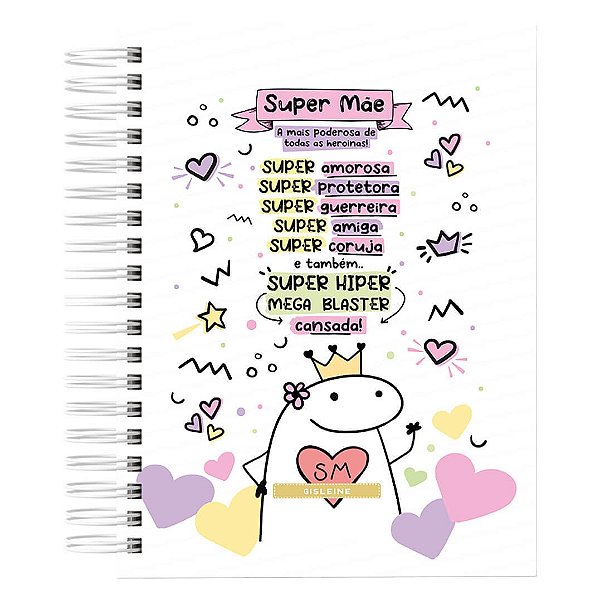 Super Mãe
A mais poderosa de
todas as heroinas!
SUPER amorosa
SUPER protetora
SUPER guerreira
SUPER amiga
SUPER coruja
e também..
SUPER HIPER
MEGA BLASTER
cansada!
SM
GISLEINE